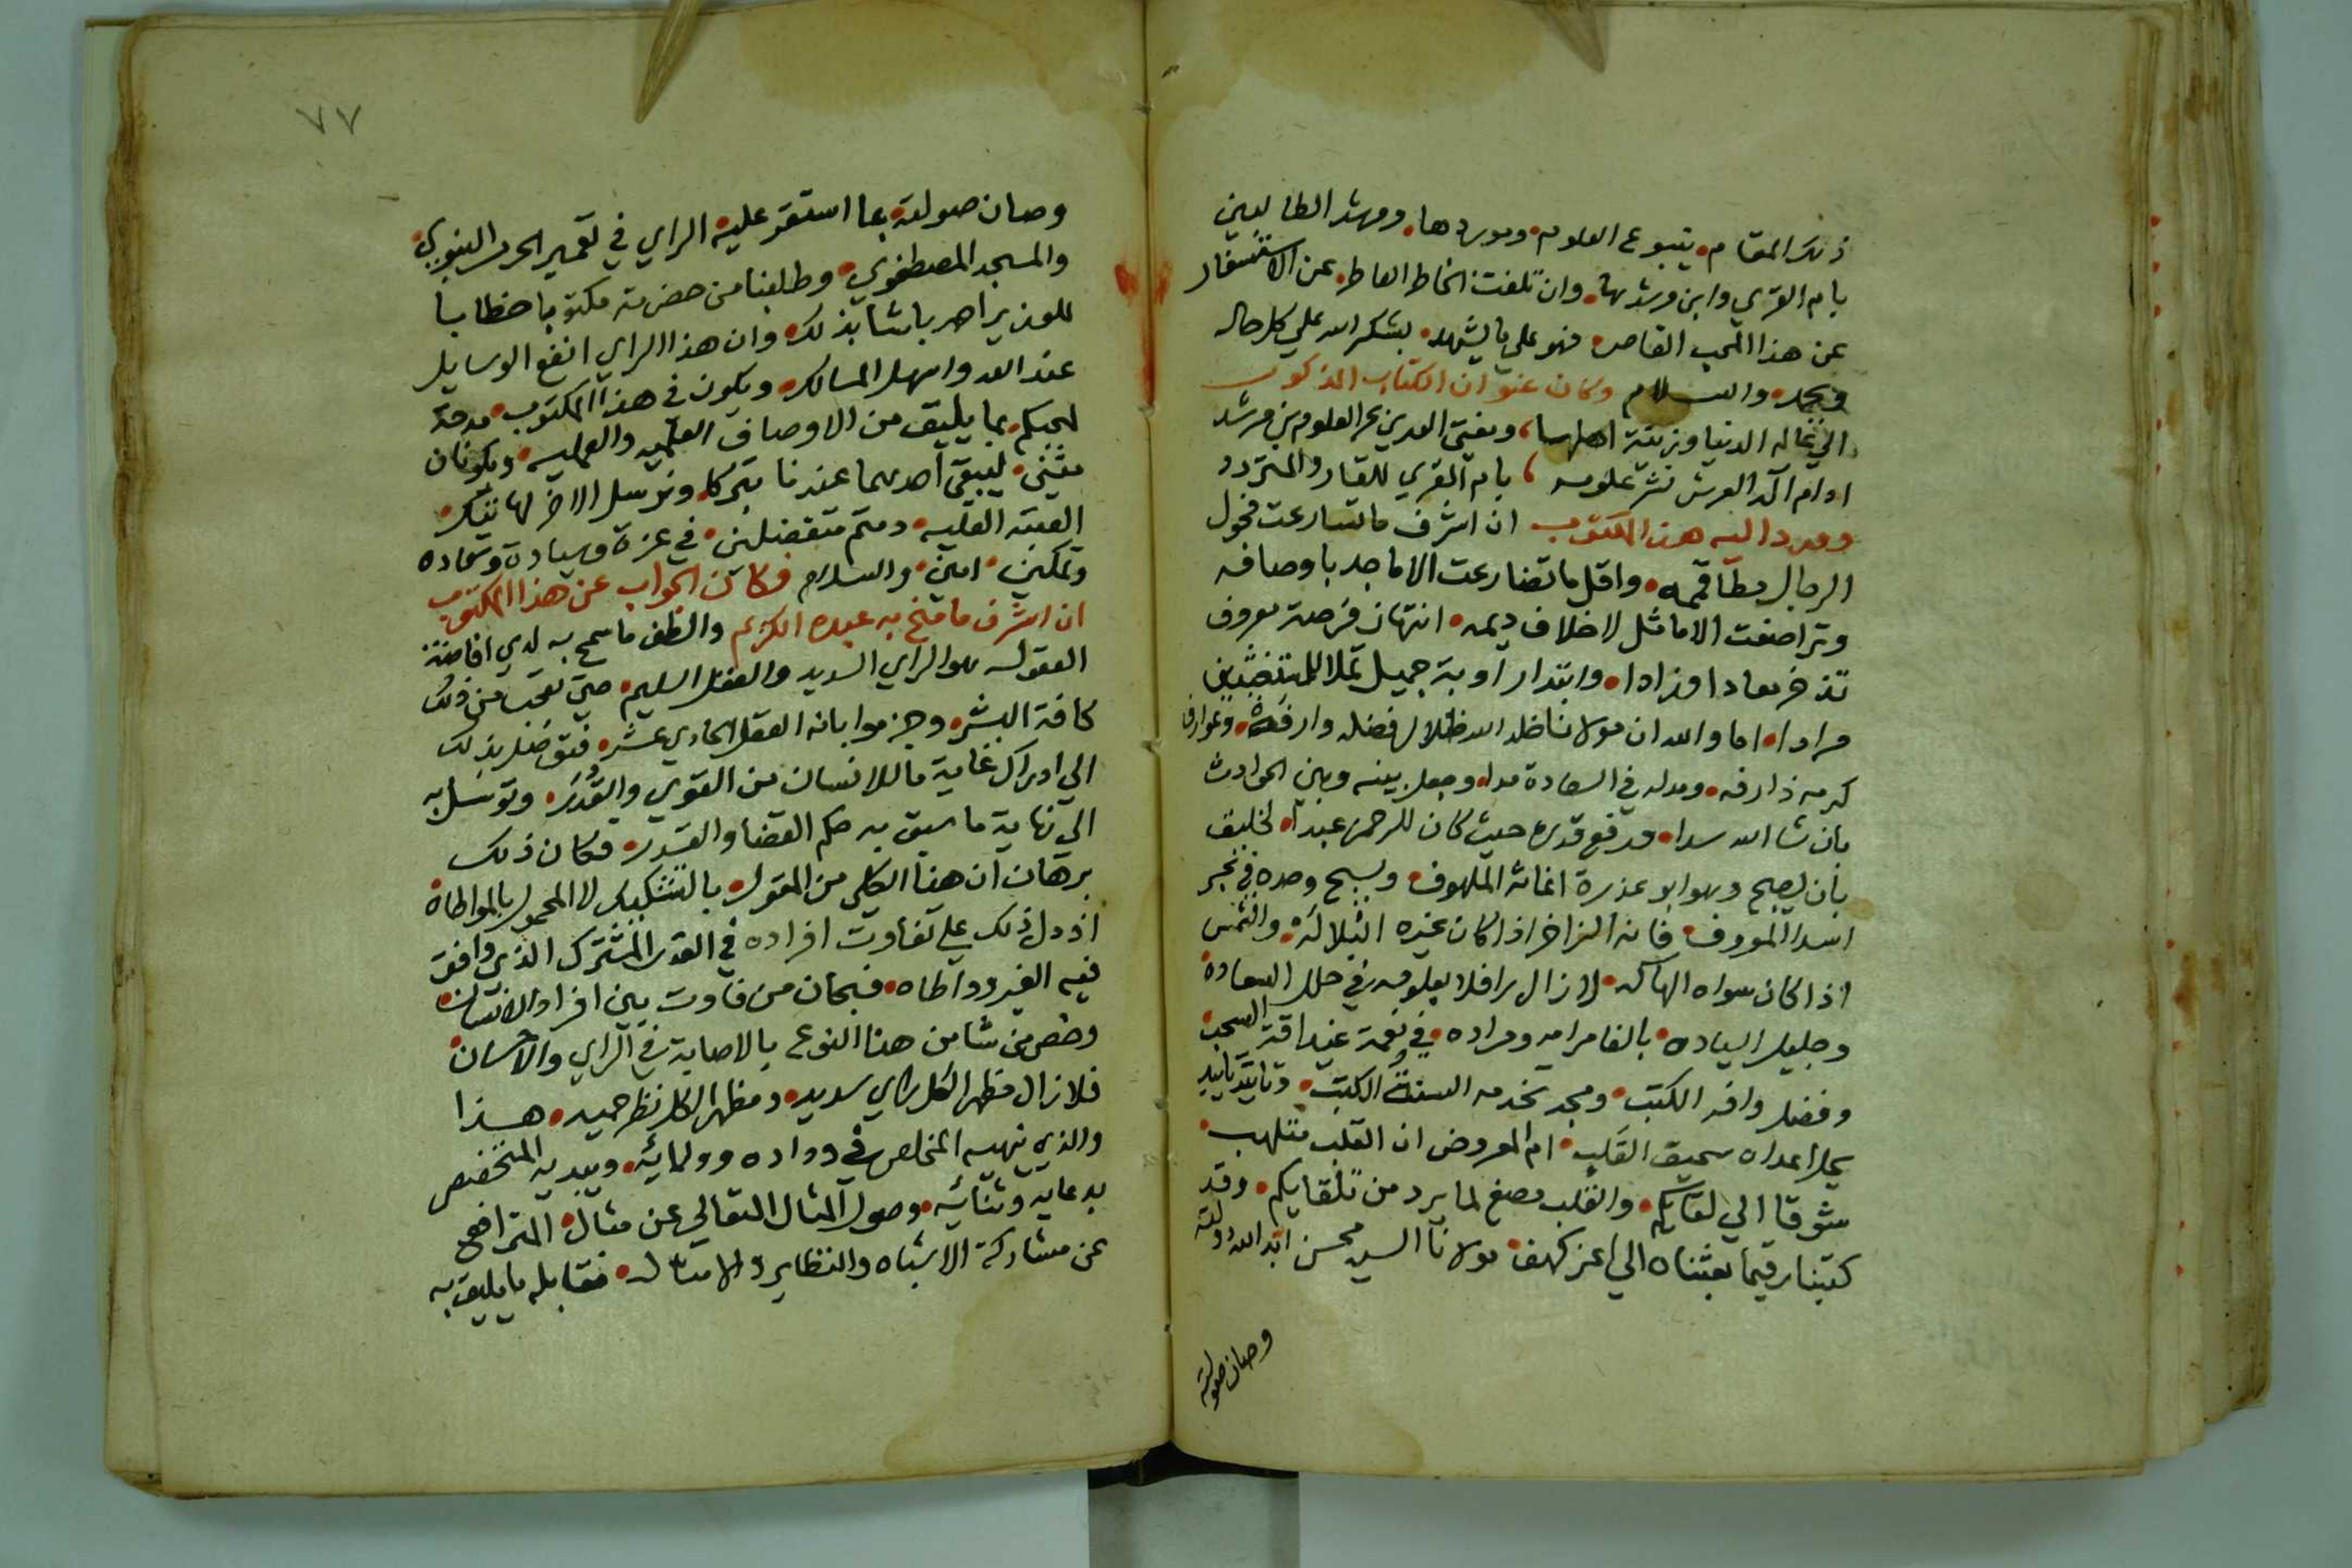 ذلك المقام • ينبوع العلوم • وموردها • ومرشد الطالبين
بام القري وابن مرشدها • وان تلفت الخاطر العاطر • عن الاستفسار
عن هذا المحب القاصر • فهو علي ما يشهد • يشكر الله علي كل حاله
ويحمد • والسلام وكان عنوان الكتاب المذكور
الي عالم الدنيا وزينة اهلها ، ومفتي الهدي بحر العلوم بن مرشد
ادام اله العرش نشر علومه ، بام القري للقار والمتردد
وورد اليه هذا المكتوب ان اشرف ما تسارعت فحول
الرجال قممه • واقل ما تضارعت الاماجد باوصافه
وتراضعت الاماثل لاخلاف ديمه • انتهاز فرصة معروف
تدخر معادا وزادا • وابتدار اوبة جميل
مرادا • اما والله ان مولانا خلد الله ظلال فضله وارفة • وعوارف
كرمه ذارفه • ومد له في السعادة مدا • وجعل بينه وبين الحوادث
بان شا الله سدا • ورفع قدره حيث كان للرحمن عبدا • لخليق
بان يصبح وهو ابو عذرة اغاثة الملهوف • ويسبح وحده في بحر
اسدا المعروف • فانه الزاخر اذا كان غيره • والشمس
اذا كان سواه الهاله • لا زال رافلا بعلومه في حلل السعادة
وجليل السياده • بالغا مرامه ومراده • في نعمة غيداقة السحب
وفضل وافر الكتب • ومجد تخدمه السنة الكتب • وتاييد
اعداه سحيق القليب • ام المعروض ان القلب متلهب •
شوقا الي لقايكم • والقلب مصغ لما يرد من تلقايكم • وقد
كتبنا رقيما بعثناه الي اعز كهف • مولانا السيد محسن ابد الله دولته
وصان صولته
٧٧
وصان صولته • بما استقر عليه الراي في تعمير الحرم النبوي •
والمسجد المصطفوي • وطلبنا من حضرته مكتوبا خطابا
للوزير باشا بذلك • وان هذا الراي انفع الوسايل
عند الله واسهل المسالك • ويكون في هذا المكتوب • مدحة
لمحبكم • بما يليق من الاوصاف العلميه والعمليه • ويكونان
مثنى • ليبقي احدهما عندنا تبركا • ونرسل الاخر لها تيك •
العتبة العليه • دمتم متفضلين • في عزة وسيادة وسعاده
وتمكين • امين • والسلام فكان الجواب عن هذا المكتوب
ان اشرف ما منح به عبده الكريم والطف ما سمح به لدي افاضة
العقول هو الراي السديد والعقل السليم • حتي تعجب من ذلك
كافة البشر • وجزموا بانه العقل الحادي عشر • فتوصل بذلك
الي ادراك غاية ما للانسان من القوي والقدر • وتوسل به
الي نهاية ما سبق به حكم القضا والقدر • فكان ذلك
برهان ان هذا الكلي من المقول • بالتشكيك لا المحمول بالمواطاة •
اذ دل ذلك علي تفاوت افراده في القدر المشترك الذي وافق
فيه الغير وواطاه • فسبحان من فاوت بين افراد الانسان •
وخص من شا من هذا النوع بالاصابة في الراي والاحسان •
فلا زال مظهرا لكل راي سديد • ومظهرا لكل نظر حميد • هذا
والذي ينهيه المخلص في وداده وولائه • ويبديه المتخصص
بدعايه وثنائه • وصول المثال المتعالي عن مثال • المترافع
عن مشاركة الاشباه والنظاير والامثال • فقابله بما يليق به